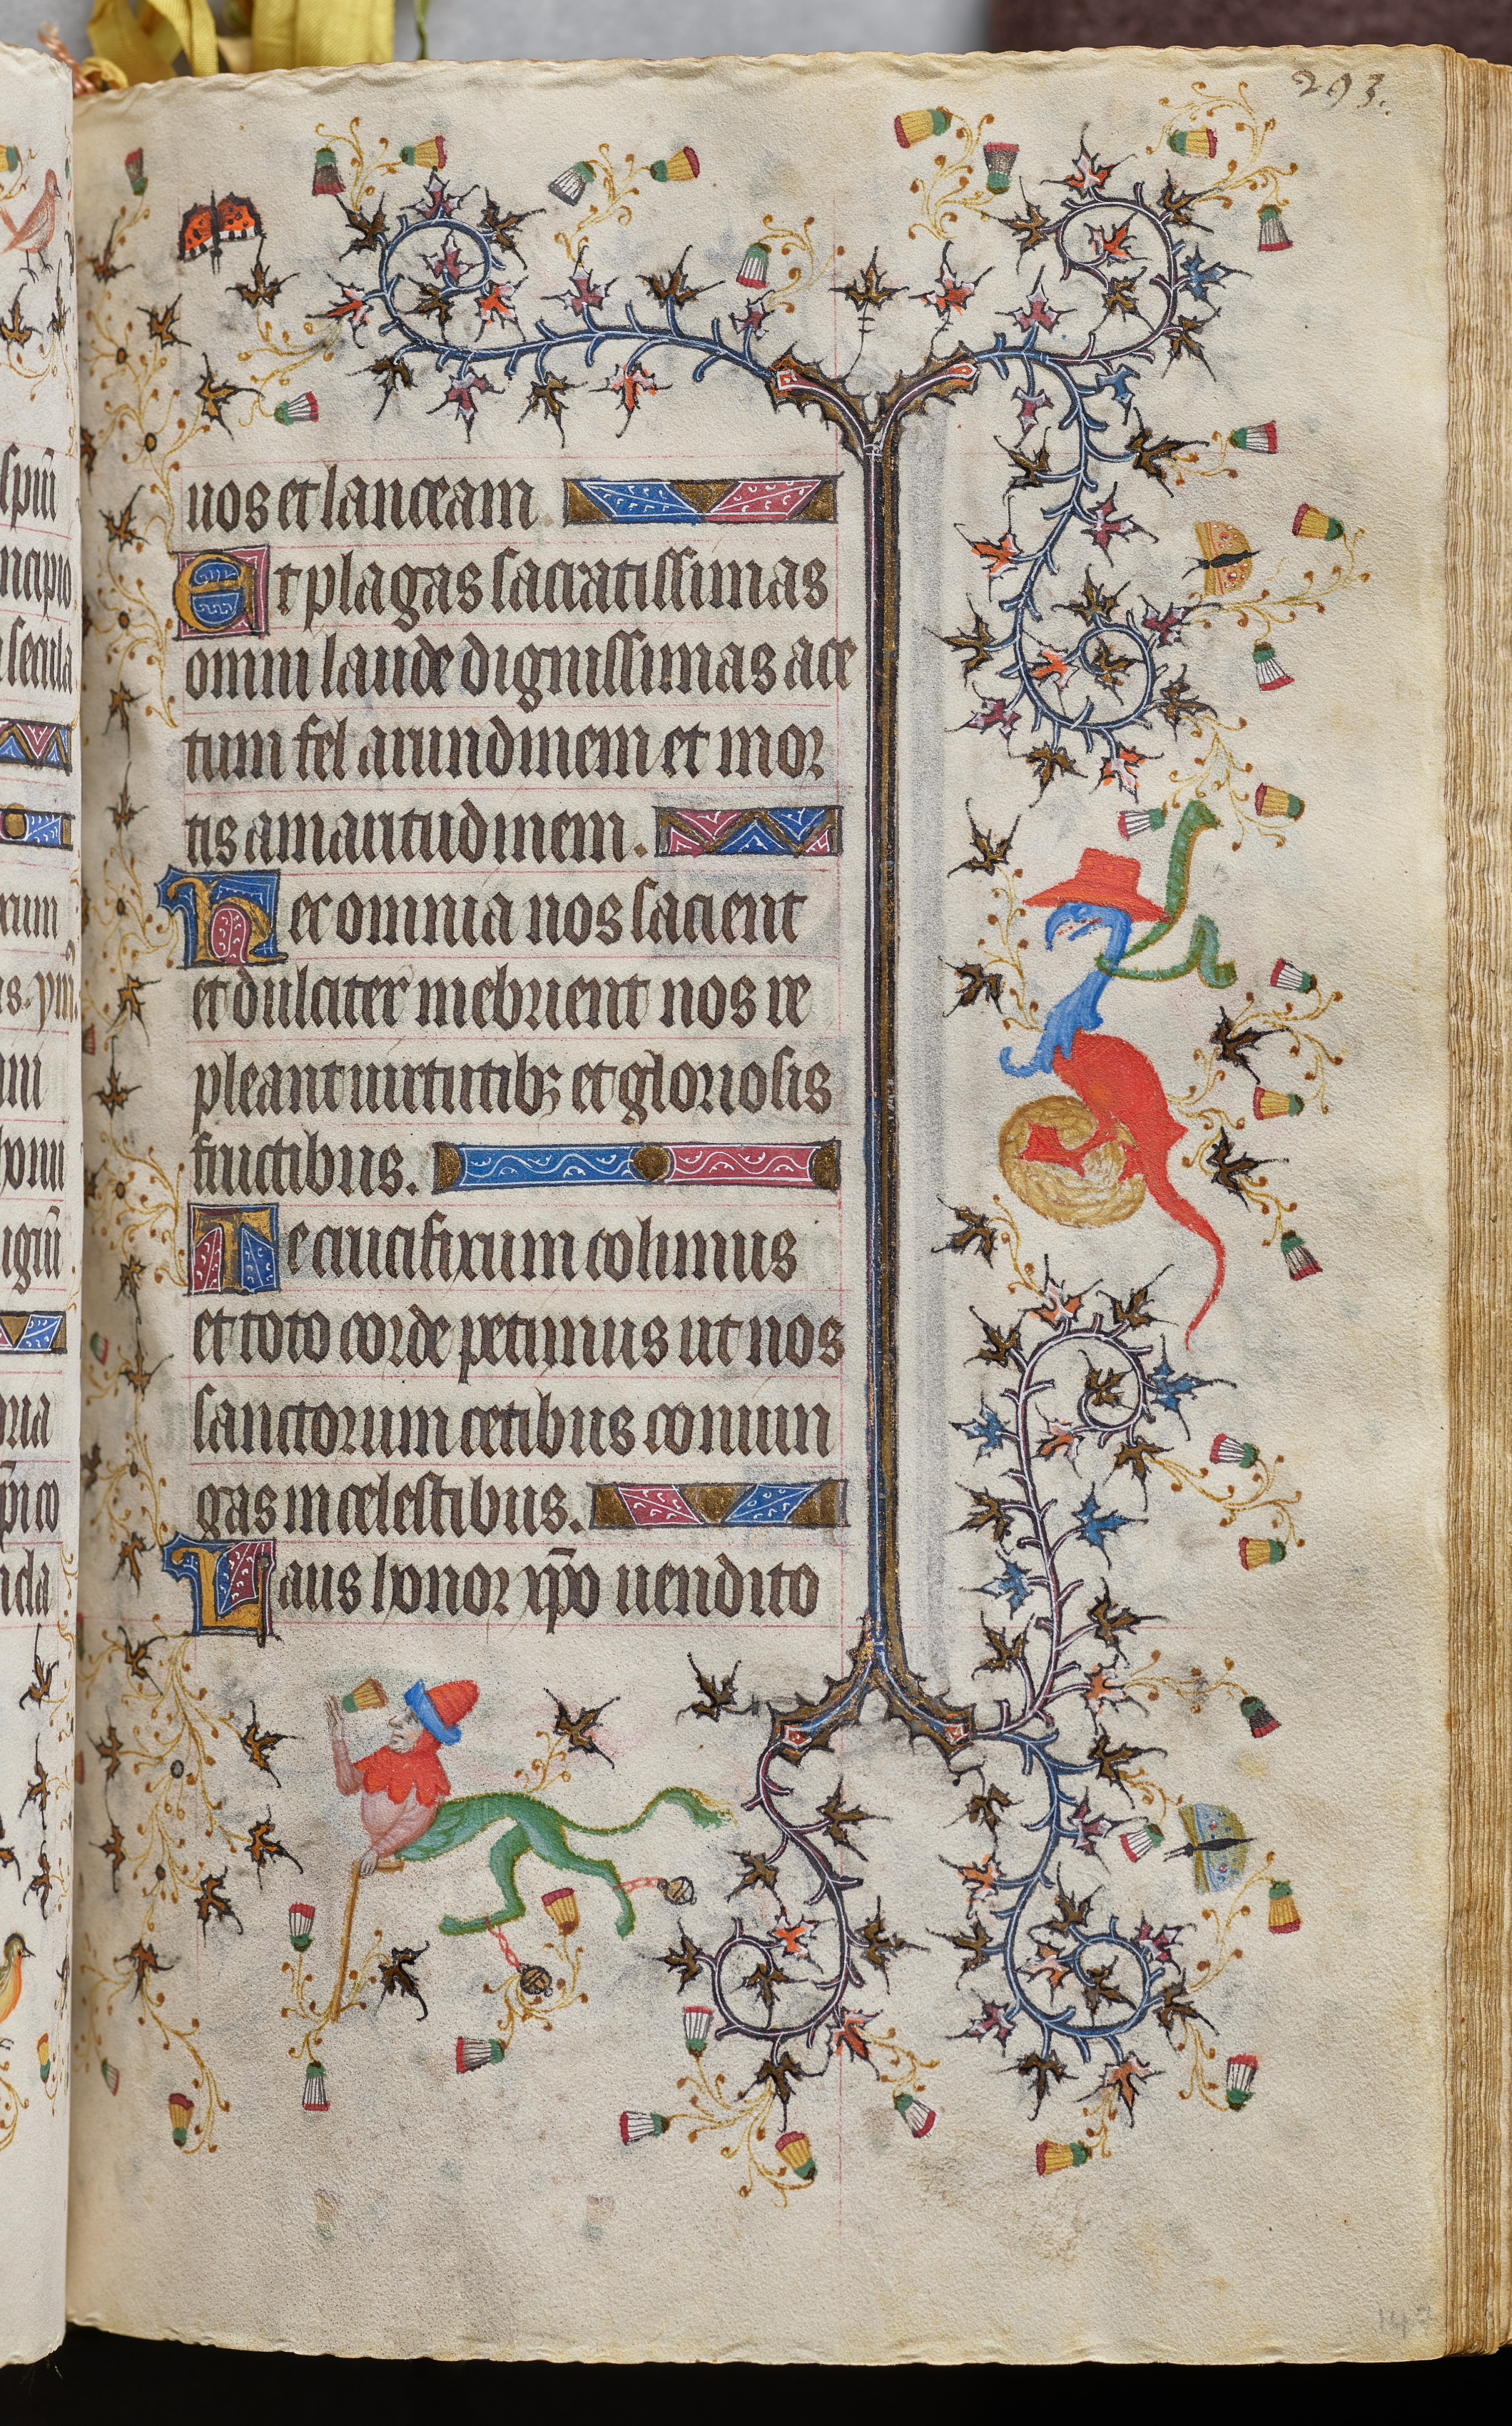 293.
uos et lanceam.
Et plagas sacratissimas
omni laude dignissimas ace
tum fel arundinem et mor
tis amaritudinem.
Hec omnia nos sacient
et dulciter inebrient nos re
pleant uirtutibꝫ et gloriosis
fructibus.
Te crucifixum colimus
et toto corde petimus ut nos
sanctorum cetibus coniun
gas in celestibus.
Laus honor xp̄o uendito
147